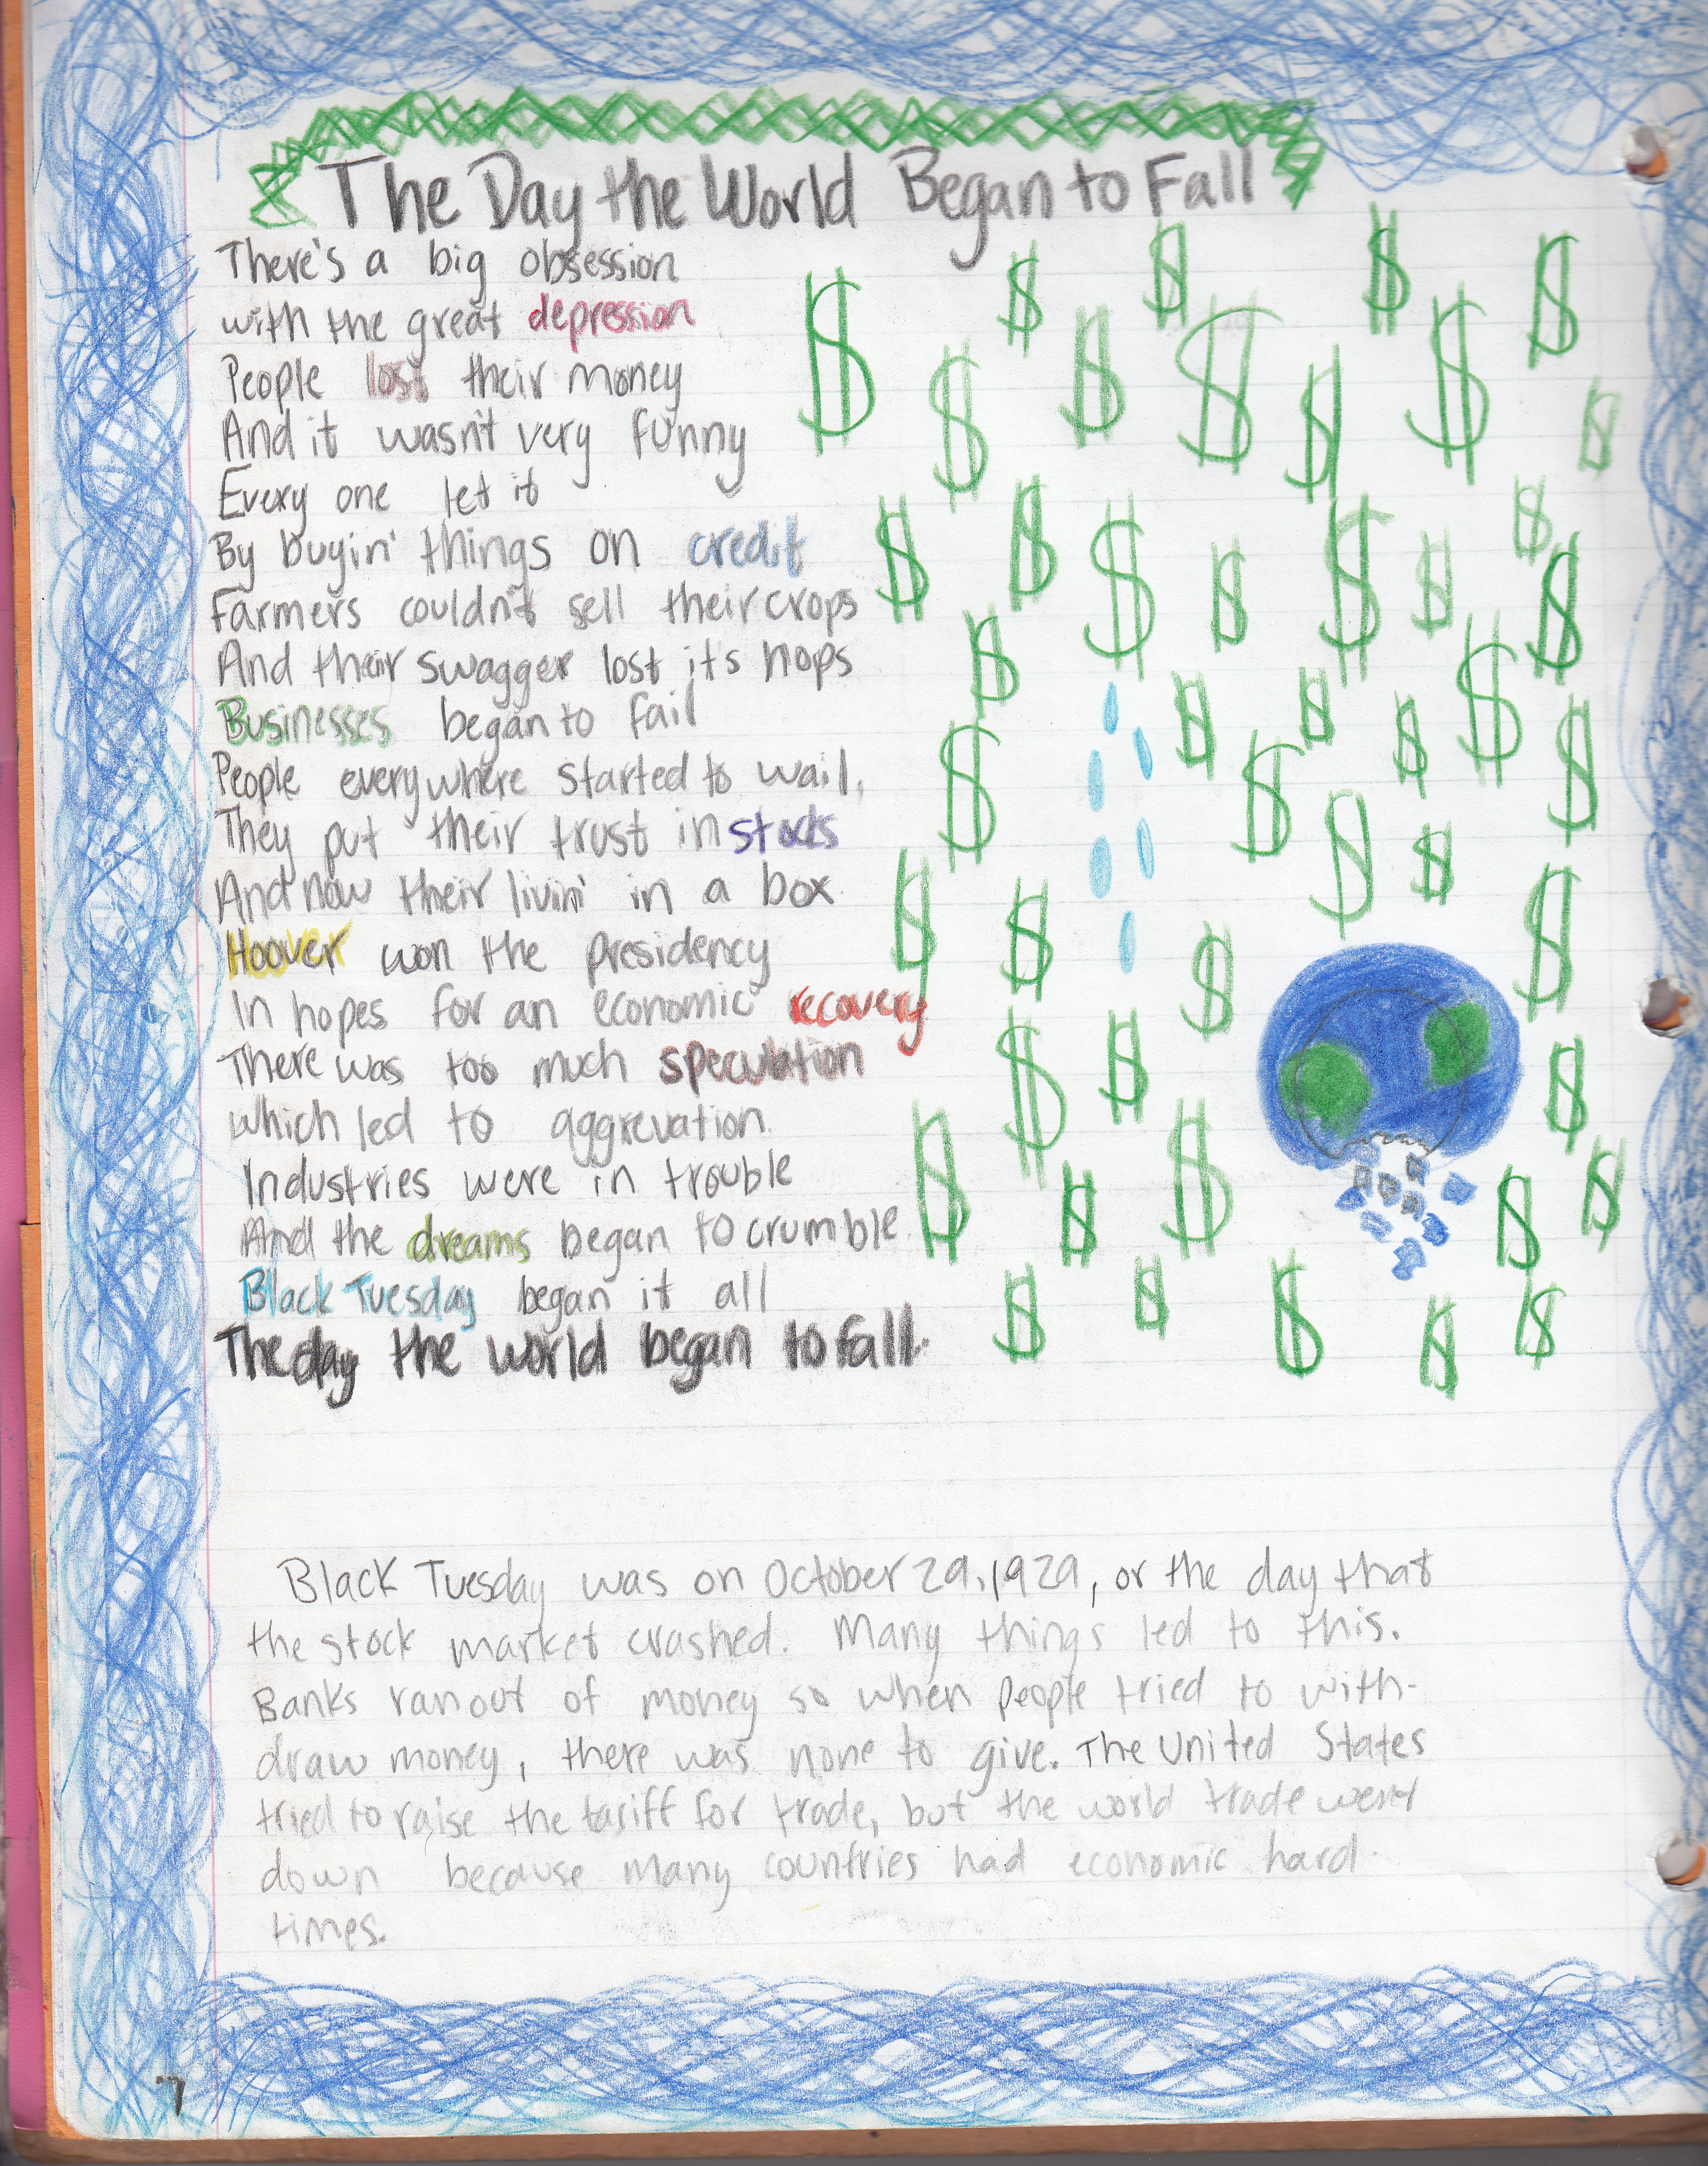 The Day the World Began to Fall
There's a big obsession
with the great depression
People lost their money
And it wasn't very funny
Every one let it
By buyin' things on credit
Farmers couldn't sell their crops
And their swagger lost its hops
Businesses began to fail
People everywhere started to wail,
They put their trust in stocks
And now their livin' in a box.
Hoover won the presidency
In hopes for an economic recovery
There was too much speculation
which led to aggrevation.
Industries were in trouble
And the dreams began to crumble.
Black Tuesday began it all
The day the world began to fall.
Black Tuesday was on October 29, 1929, or the day that
the stock market crashed. Many things led to this.
Banks ran out of money so when people tried to with-
draw money, there was none to give. The United States
tried to raise the tariff for trade, but the world trade went
down because many countries had economic hard
times.
7